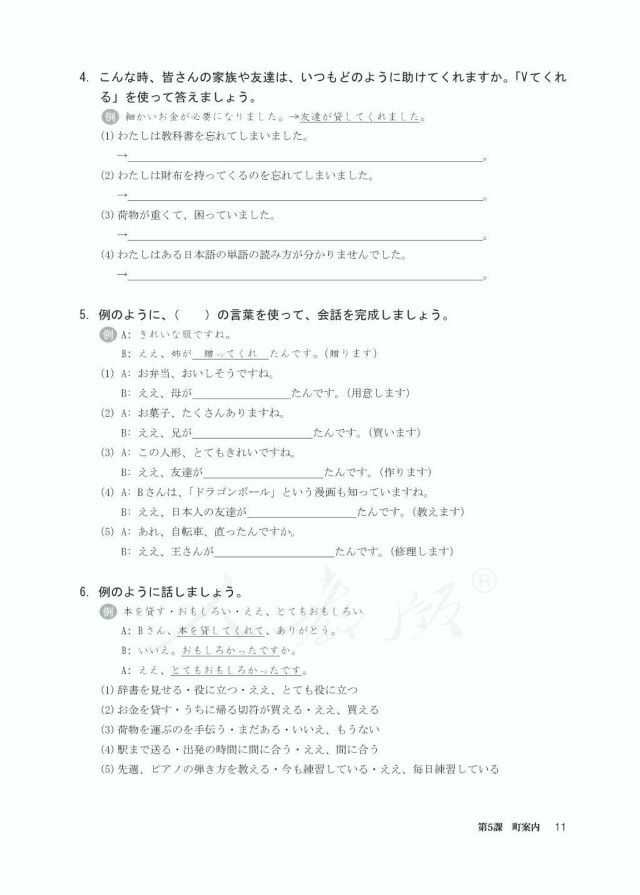 4. こんな時、皆さんの家族や友達は、いつもどのように助けてくれますか。「Vてくれ
る」を使って答えましょう。
例 細かいお金が必要になりました。→友達が貸してくれました。
(1) わたしは教科書を忘れてしまいました。
→______。
(2) わたしは財布を持ってくるのを忘れてしまいました。
→______。
(3) 荷物が重くて、困っていました。
→______。
(4) わたしはある日本語の単語の読み方が分かりませんでした。
→______。
5. 例のように、(　　)の言葉を使って、会話を完成しましょう。
例 A: きれいな服ですね。
B: ええ、姉が 贈ってくれ たんです。(贈ります)
(1) A: お弁当、おいしそうですね。
B: ええ、母が______たんです。(用意します)
(2) A: お菓子、たくさんありますね。
B: ええ、兄が______たんです。(買います)
(3) A: この人形、とてもきれいですね。
B: ええ、友達が______たんです。(作ります)
(4) A: Bさんは、「ドラゴンボール」という漫画も知っていますね。
B: ええ、日本人の友達が______たんです。(教えます)
(5) A: あれ、自転車、直ったんですか。
B: ええ、王さんが______たんです。(修理します)
6. 例のように話しましょう。
例 本を貸す・おもしろい・ええ、とてもおもしろい
A: Bさん、本を貸してくれて、ありがとう。
B: いいえ。おもしろかったですか。
A: ええ、とてもおもしろかったです。
(1) 辞書を見せる・役に立つ・ええ、とても役に立つ
(2) お金を貸す・うちに帰る切符が買える・ええ、買える
(3) 荷物を運ぶのを手伝う・まだある・いいえ、もうない
(4) 駅まで送る・出発の時間に間に合う・ええ、間に合う
(5) 先週、ピアノの弾き方を教える・今も練習している・ええ、毎日練習している
人教版®
第5課 町案内 11